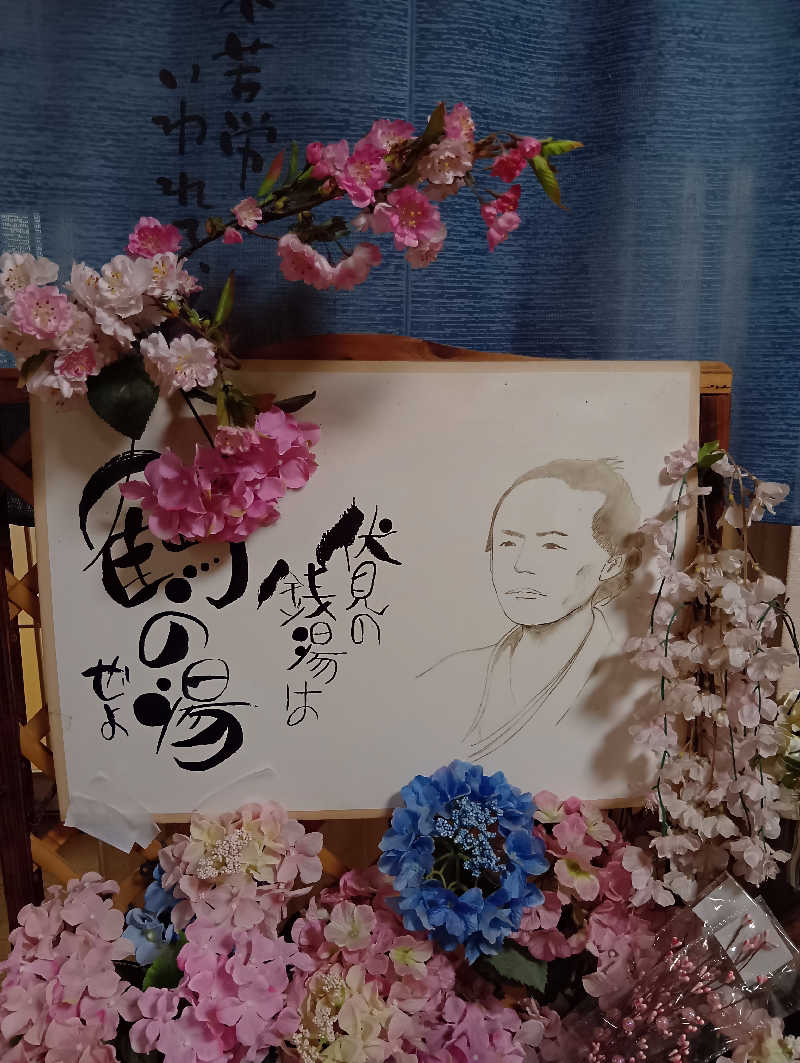 苦労
いわれ
伏見の
銭湯は
鶴の湯
ぜよ